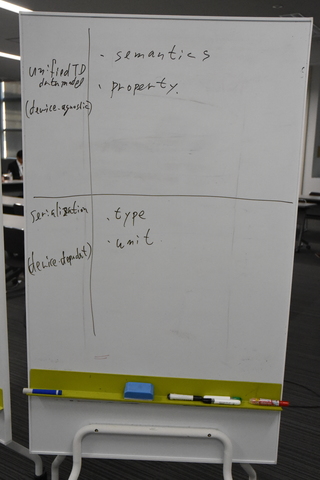 unified TD
data model
(device-agnostic)
· semantics
· property.
serialization
(device-dependent)
· type
· unit